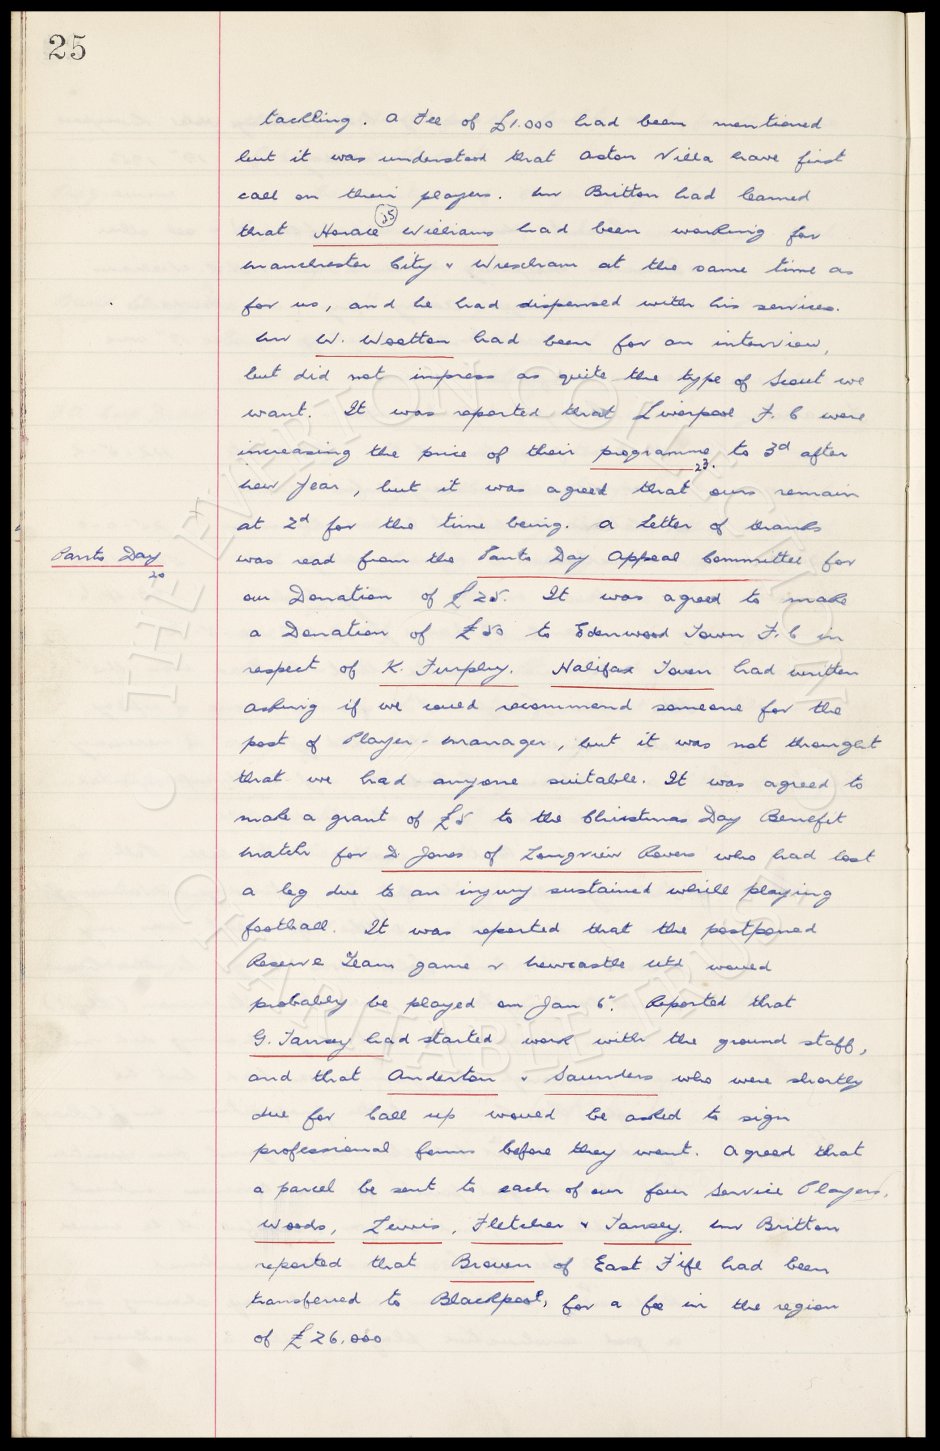 25
tackling. A Fee of £1.000 had been mentioned
but it was understood that Aston Villa have first
call on their players. Mr Britton had learned
that Horace Williams had been working for
35
Manchester City & Wrexham at the same time as
for us, and he had dispensed with his services.
Mr W. Wootton had been for an interview,
but did not impress as quite the type of Scout we
want. It was reported that Liverpool F.C were
increasing the price of their programme to 3d after
23.
New Year, but it was agreed that ours remain
at 2d for the time being. A Letter of thanks
Pants Day
20
was read from the Pants Day Appeal Committee for
our Donation of £25. It was agreed to make
a Donation of £50 to Edenwood Town F.C in
respect of K. Furphy. Halifax Town had written
asking if we could recommend someone for the
post of Player-Manager, but it was not thought
that we had anyone suitable. It was agreed to
make a grant of £5 to the Christmas Day Benefit
Match for D. Jones of Longview Rovers who had lost
a leg due to an injury sustained while playing
football. It was reported that the postponed
Reserve Team game v Newcastle Utd would
probably be played on Jan 6th. Reported that
G. Tansey had started work with the ground staff,
and that Anderton & Saunders who were shortly
due for Call up would be asked to sign
professional forms before they went. Agreed that
a parcel be sent to each of our four Service Players,
Woods, Lewis, Fletcher & Tansey. Mr Britton
reported that Brown of East Fife had been
transferred to Blackpool, for a fee in the region
of £26.000
THE EVERTON COLLECTION
CHARITABLE TRUST